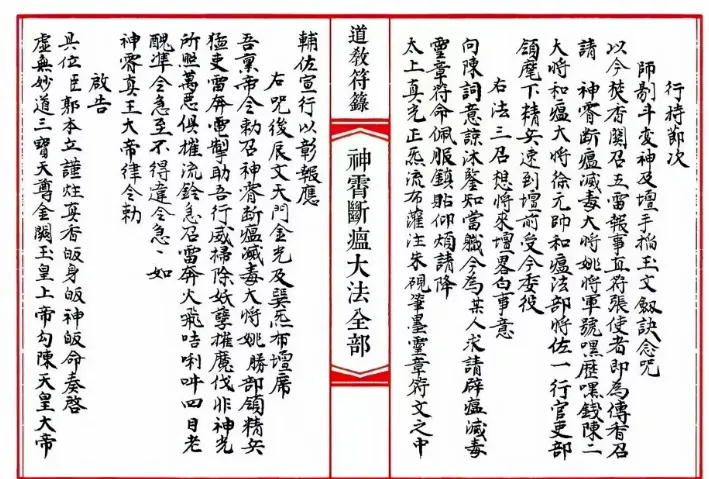 行持節次
師剔斗变神及壇手掐玉文劔訣念咒
以今焚香関召五雷報事直符張使者即為傳香召
請神霄断瘟滅毒大將姚將軍號嘿歷嘿錢陳二
大將和瘟大將徐元帥和瘟法部將佐一行官吏部
領麾下精兵速到壇前受今委役
右法三召想將來壇畧白事意
向陳詞意諒沐鑒知當軄今為某人求請辟瘟滅毒
靈章符命佩服鎮貼仰煩請降
太上真光正炁流布灌注朱硯筆墨靈章符文之中
道教符籙
神霄斷瘟大法全部
輔佐宣行以彰報應
右咒後辰文天門金光及巽炁布壇席
吾稟帝令勅召神霄断瘟滅毒大將姚勝部領精兵
猛吏雷奔電掣助吾行威掃除妖孽摧魔伐非神光
所照萬惡俱摧流鈴急召雷奔火飛咭唎吽四目老
醜準令急至不得違令急丶如
神霄真王大帝律令勅
啟告
具位臣郭本立謹炷真香皈身皈神皈命奏啓
虛無妙道三寶天尊金闕玉皇上帝勾陳天皇大帝